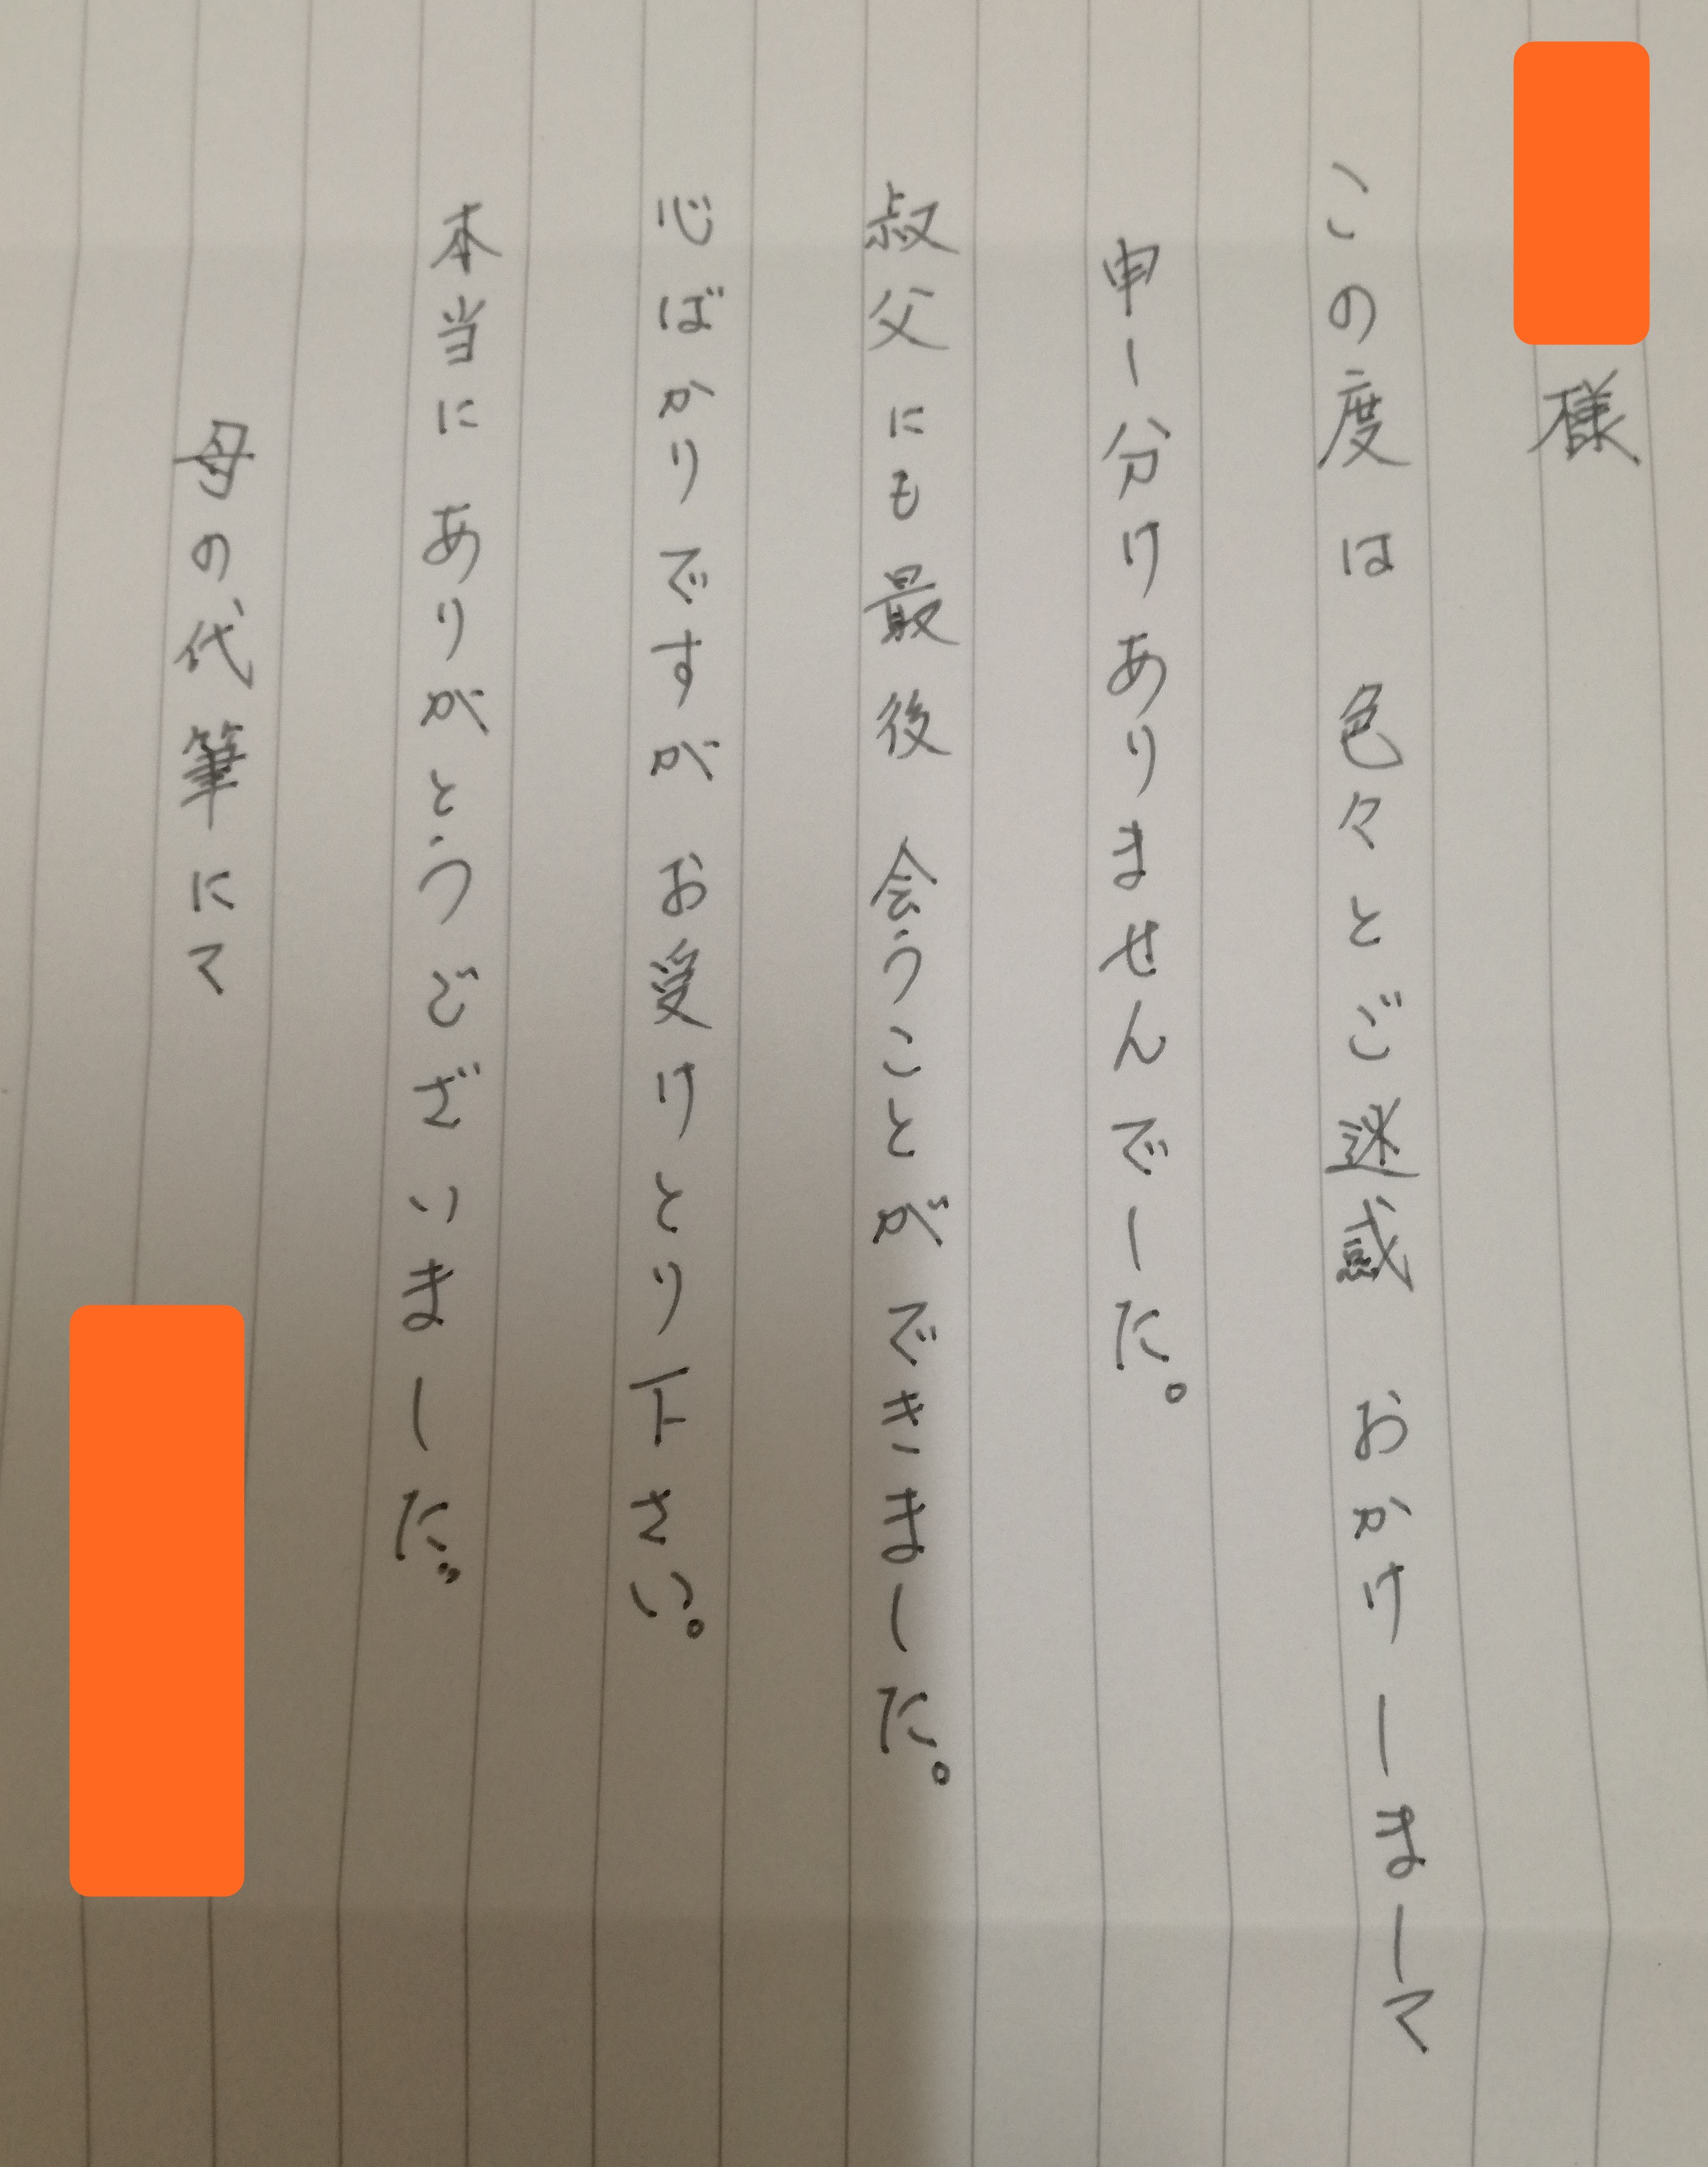 様
この度は色々とご迷惑おかけしまして
申し分けありませんでした。
叔父にも最後会うことができました。
心ばかりですがお受けとり下さい。
本当にありがとうございました。
母の代筆にて